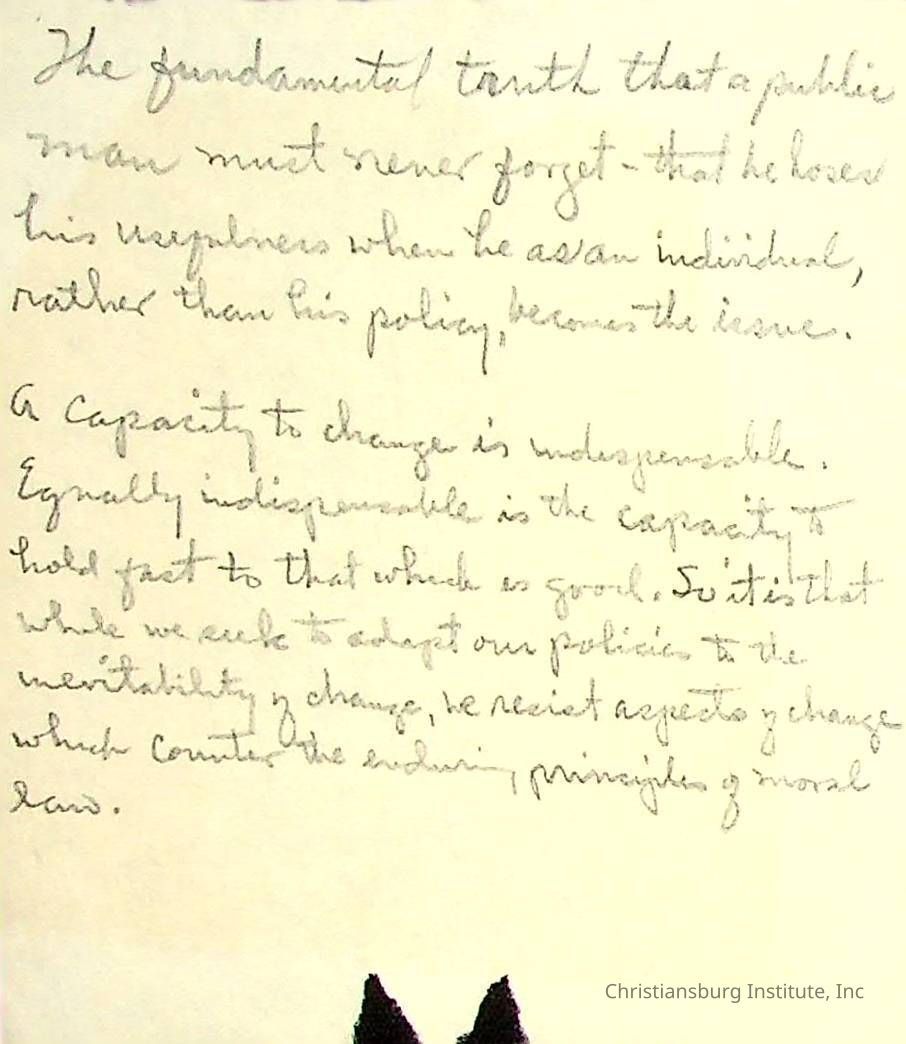 The fundamental truth that a public
man must never forget - that he loses
his usefulness when he as an individual,
rather than his policy, becomes the issue.
A capacity to change is indispensable.
Equally indispensable is the capacity to
hold fast to that which is good. So it is that
while we seek to adapt our policies to the
inevitability of change, we resist aspects of change
which counter the enduring principles of moral
law.
Christiansburg Institute, Inc